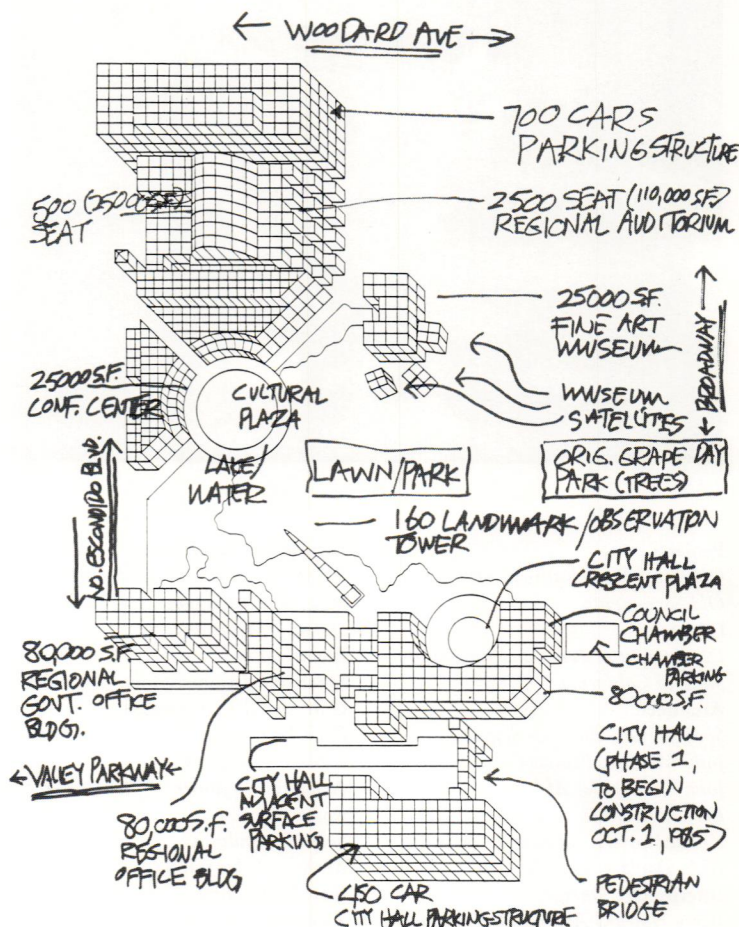 ← WOODARD AVE →
700 CARS
PARKING STRUCTURE
500 (25000 S.F.)
SEAT
2500 SEAT (110,000 S.F.)
REGIONAL AUDITORIUM
25000 S.F.
FINE ART
MUSEUM
← BROADWAY →
MUSEUM
SATELITES
25000 S.F.
CONF. CENTER
CULTURAL
PLAZA
LAKE/
WATER
LAWN/PARK
ORIG. GRAPE DAY
PARK (TREES)
NO. ESCONDIDO BLVD.
160 LANDMARK/OBSERVATION
TOWER
CITY HALL
CRESCENT PLAZA
COUNCIL
CHAMBER
CHAMBER
PARKING
80,000 S.F.
REGIONAL
GOVT. OFFICE
BLDG.
80,000 S.F.
CITY HALL
(PHASE 1,
TO BEGIN
CONSTRUCTION
OCT. 1, 1985)
← VALLEY PARKWAY ←
CITY HALL
ADJACENT
SURFACE
PARKING
80,000 S.F.
REGIONAL
OFFICE BLDG
450 CAR
CITY HALL PARKING STRUCTURE
PEDESTRIAN
BRIDGE